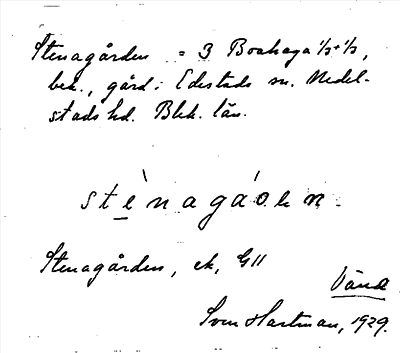 Stenagården = 3 Boahaga 1/3+1/3,
bek., gård i Edestads sn. Medel-
stads hd. Blek. län.
stènagáoen.
Stenagården, ek, G11
Vänd
Sven Hartman, 1929.